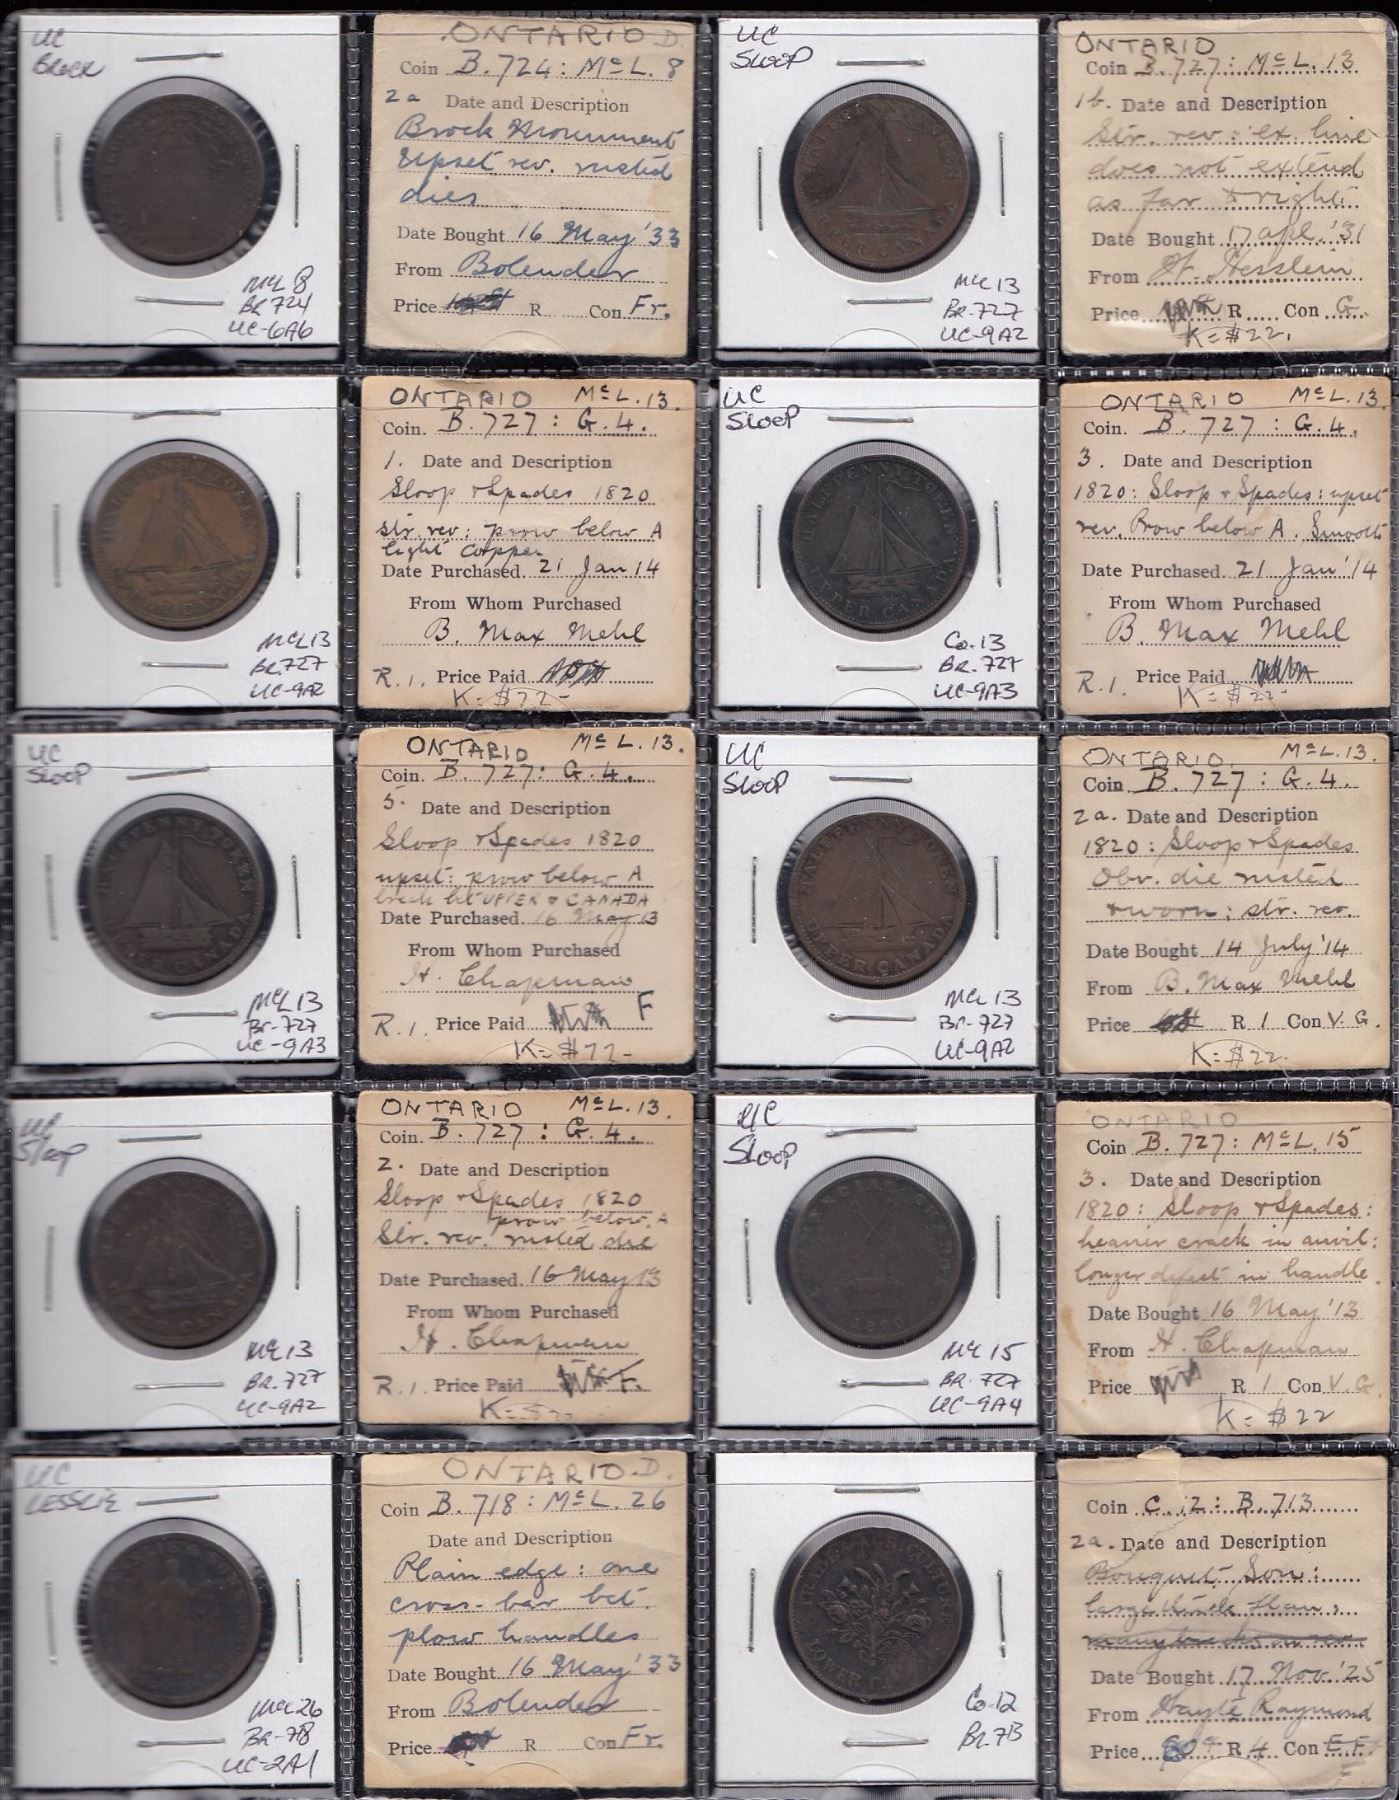 UC
Brock
McL 8
Br 724
UC-6A6
ONTARIO D.
Coin B. 724: McL. 8
2a Date and Description
Brock Monument
upset rev. rusted
dies
Date Bought 16 May '33
From Bolender
Price R Con Fr.
UC
Sloop
HALFPENNY TOKEN
UPPER CANADA
McL 13
Br-727
UC-9A2
ONTARIO
Coin B. 727: McL. 13
1b. Date and Description
Str. rev: ex. line
does not extend
as far to right.
Date Bought 17 Apl. '31
From H. Hesslein
Price R Con G.
K=$22.
HALFPENNY TOKEN
UPPER CANADA
McL 13
Br. 727
UC-9A2
ONTARIO McL. 13.
Coin. B. 727: G. 4.
1. Date and Description
Sloop & Spades 1820
str. rev: prow below A
light copper
Date Purchased. 21 Jan 14
From Whom Purchased
B. Max Mehl
R. 1. Price Paid
K=$22-
UC
Sloop
HALFPENNY TOKEN
UPPER CANADA
Co. 13
Br. 727
UC-9A3
ONTARIO McL. 13.
Coin. B. 727: G. 4.
3. Date and Description
1820: Sloop & Spades: upset
rev. Prow below A. Smooth
Date Purchased. 21 Jan '14
From Whom Purchased
B. Max Mehl
R. 1. Price Paid
K=$22-
UC
Sloop
HALFPENNY TOKEN
UPPER CANADA
McL 13
Br-727
UC-9A3
ONTARIO McL. 13.
Coin. B. 727: G. 4.
5. Date and Description
Sloop & Spades 1820
upset: prow below A
break bet UPPER & CANADA
Date Purchased 16 May 13
From Whom Purchased
H. Chapman
R. 1. Price Paid F
K=$22-
UC
Sloop
HALFPENNY TOKEN
UPPER CANADA
McL 13
Br-727
UC-9A2
ONTARIO. McL. 13.
Coin. B. 727: G. 4.
2a. Date and Description
1820: Sloop & Spades
Obv. die rusted
& worn: str. rev.
Date Bought 14 July '14
From B. Max Mehl
Price R 1 Con V. G.
K=$22-
UC
Sloop
CANADA
McL 13
Br. 727
UC-9A2
ONTARIO McL. 13.
Coin. B. 727: G. 4.
2. Date and Description
Sloop & Spades 1820
prow below A
Str. rev. rusted die
Date Purchased. 16 May 13
From Whom Purchased
H. Chapman
R. 1. Price Paid F.
K=$22
UC
Sloop
1820
McL 15
Br. 727
UC-9A4
ONTARIO
Coin B. 727: McL. 15
3. Date and Description
1820: Sloop & Spades:
heavier crack in anvil:
longer defect in handle.
Date Bought 16 May '13
From H. Chapman
Price R 1 Con V. G.
K=$22
UC
LESSLIE
McL 26
Br-718
UC-2A1
ONTARIO D.
Coin B. 718: McL. 26
Date and Description
Plain edge: one
cross-bar bet.
plow handles
Date Bought 16 May '33
From Bolender
Price R Con Fr.
TRADE & AGRICULTURE
LOWER CANADA
Co-12
Br. 713
Coin C. 12: B. 713
2a. Date and Description
Bouquet, Sou:
large thick flan:
Date Bought 17 Nov. '25
From Wayte Raymond
Price R 4 Con E. F.
F